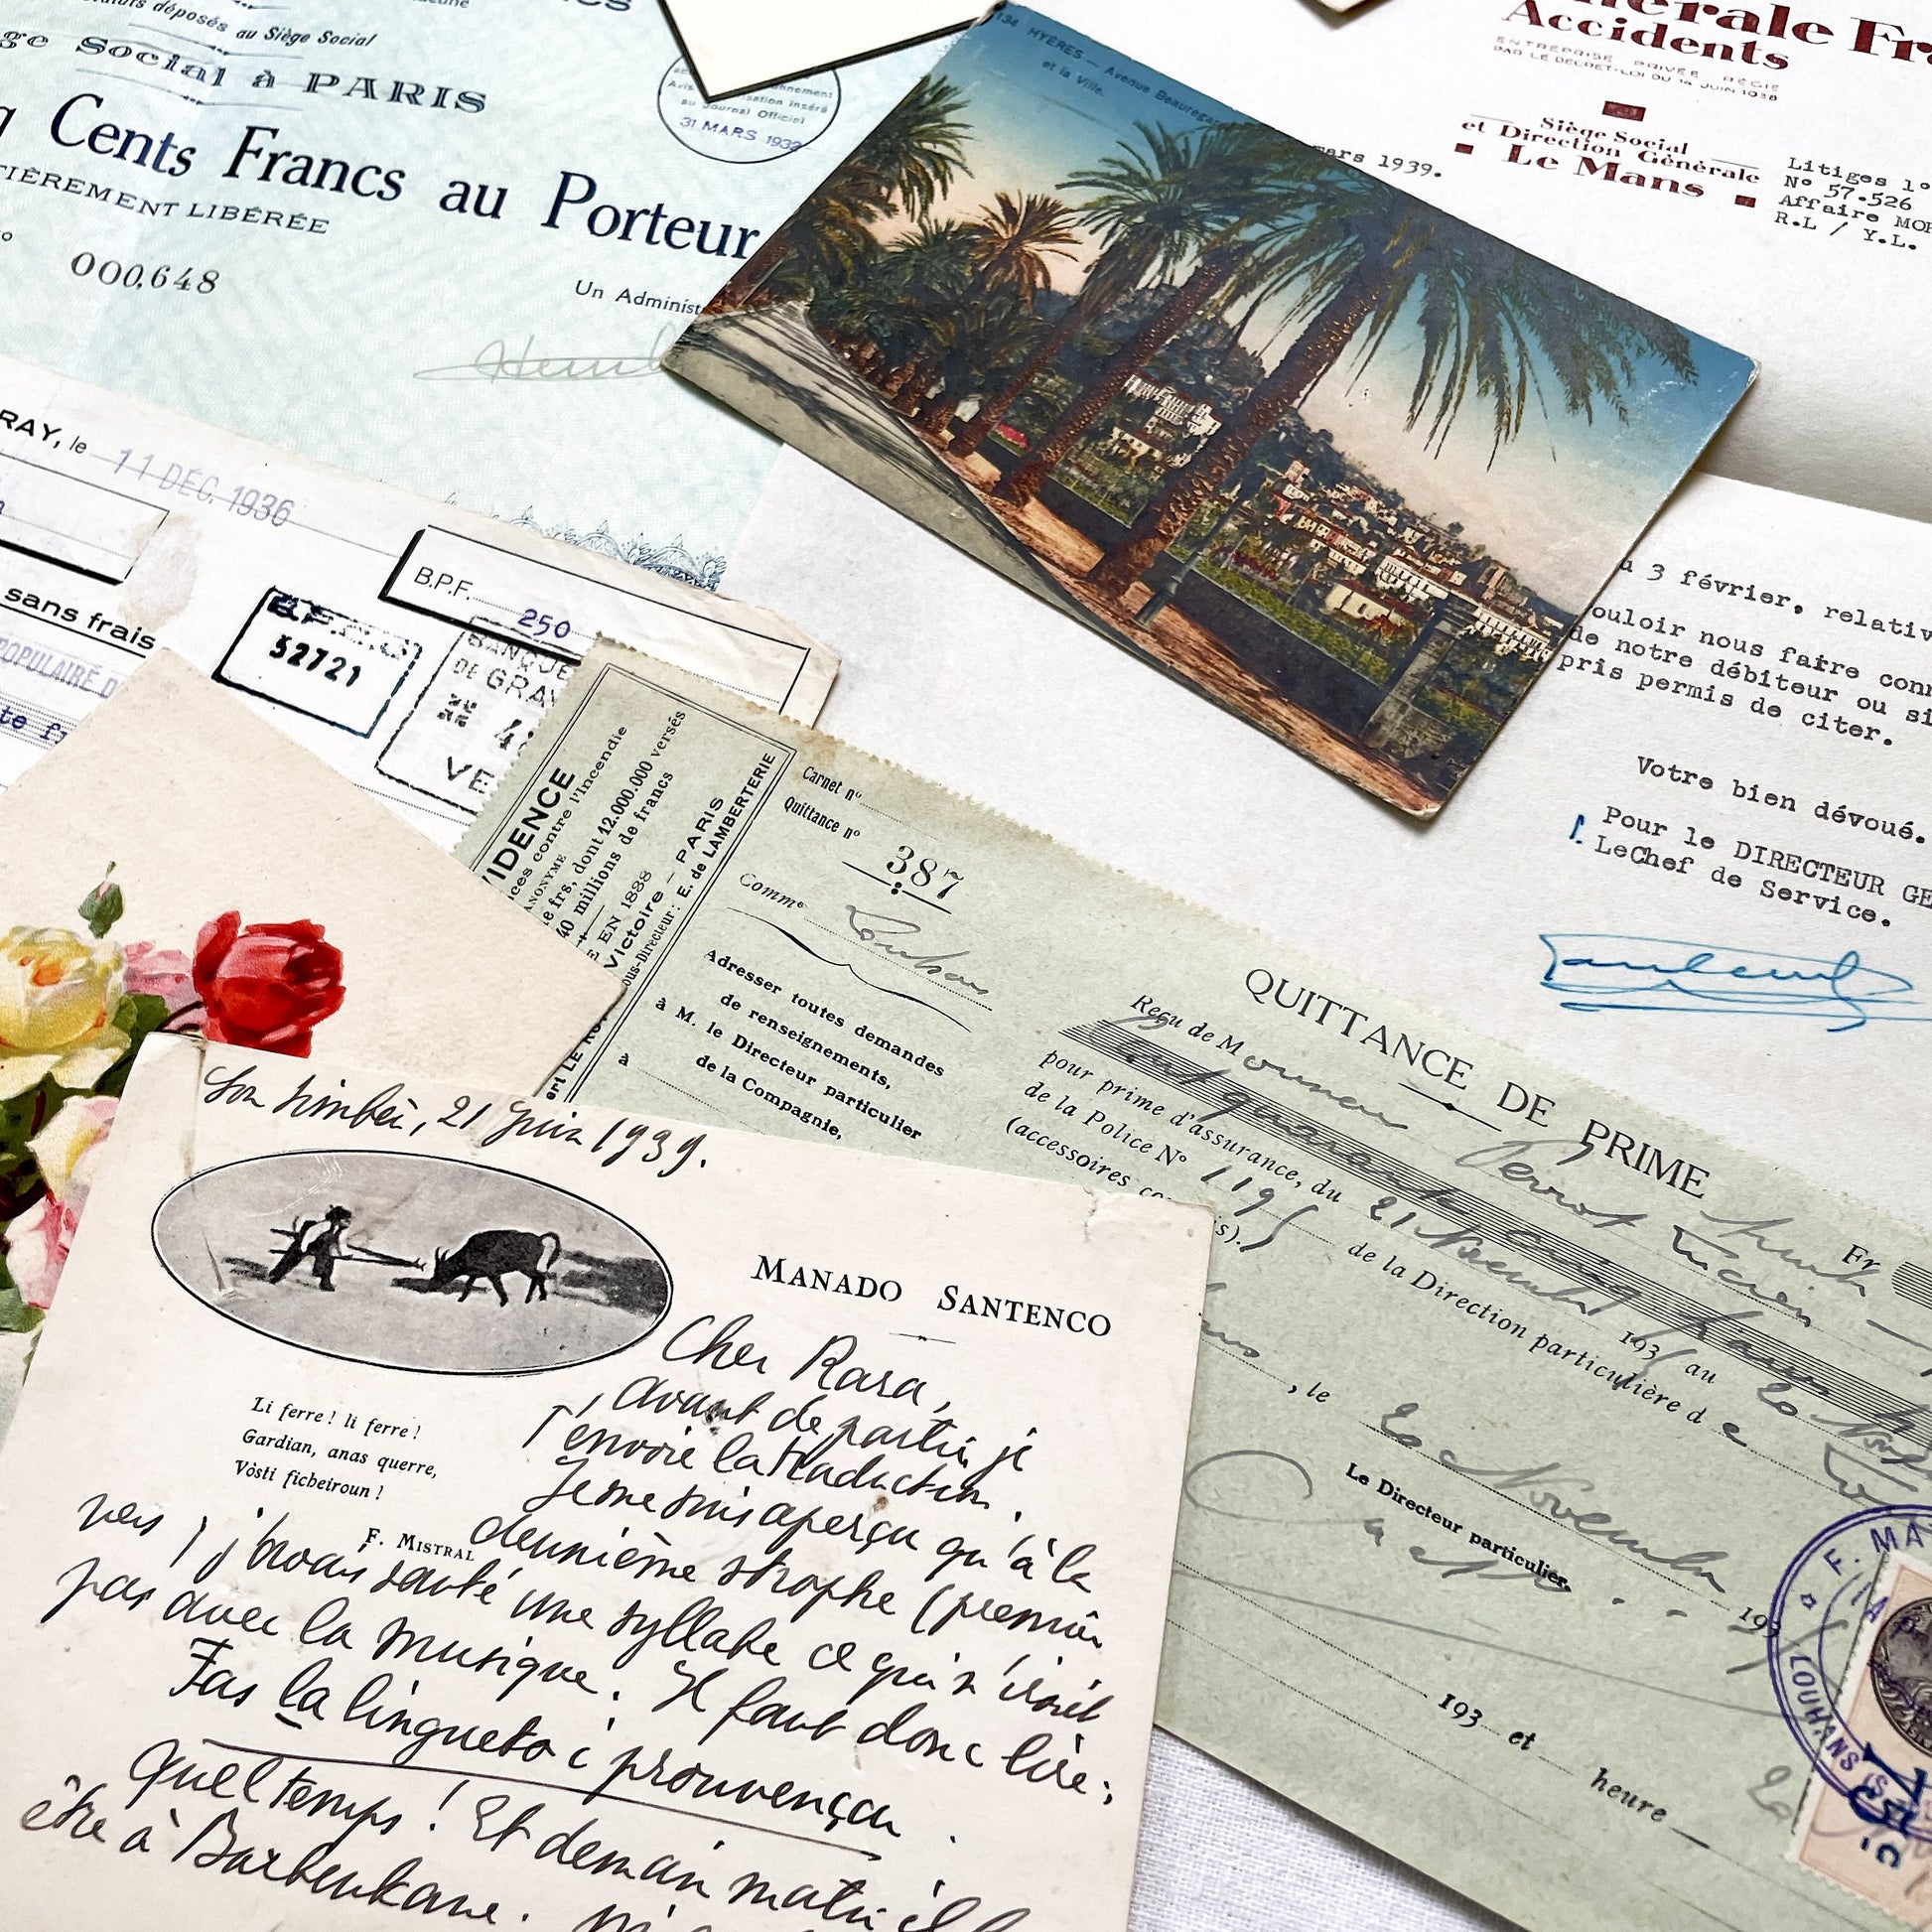 statuts déposés au Siège Social
Social à PARIS
Cents Francs au Porteur
LIBÉRÉE
000,648
Un Administ
au Journal Officiel
31 MARS 1932
134 HYÈRES — Avenue Beauregard
et la Ville.
Accidents
ENTREPRISE PRIVÉE RÉGIE
PAR LE DÉCRET-LOI DU 14 JUIN 1938
Siège Social
et Direction Générale
Le Mans
mars 1939.
Litiges 1°
N° 57.526
Affaire MOR
R.L / Y.L.
RAY, le 11 DEC. 1936
sans frais
POPULAIRE D
B.P.F. 250
52721
BANQUE
DE GRAY
u 3 février, relativ
ouloir nous faire conn
de notre débiteur ou si
pris permis de citer.
Votre bien dévoué.
Pour le DIRECTEUR GE
LeChef de Service.
IDENCE
contre l'Incendie
ANONYME
frs, dont 12.000.000 versés
40 millions de francs
EN 1838
Victoire — PARIS
E. de LAMBERTERIE
Carnet n°
Quittance n°
387
Comme Louhans
Adresser toutes demandes
de renseignements,
à M. le Directeur particulier
de la Compagnie,
à
QUITTANCE DE PRIME
Reçu de M
Fr
pour prime d'assurance, du 21 Novembre 193 au
de la Police N° 1195 de la Direction particulière de
(accessoires
, le 20 Novembre 193
Le Directeur particulier,
193 et
heure
F. MA
LOUHANS
21 juin 1939.
MANADO SANTENCO
Li ferre ! li ferre !
Gardian, anas querre,
Vòsti ficheiroun !
F. MISTRAL
Cher Rasa,
avant de partir je
t'envoie la traduction.
Je me suis aperçu qu'à la
deuxième strophe (premier
vers) j'avais sauté une syllabe ce qui n'irait
pas avec la musique. Il faut donc lire :
Fas la lingueto i prouvençau.
Quel temps ! Et demain matin il
être à Barbentane.